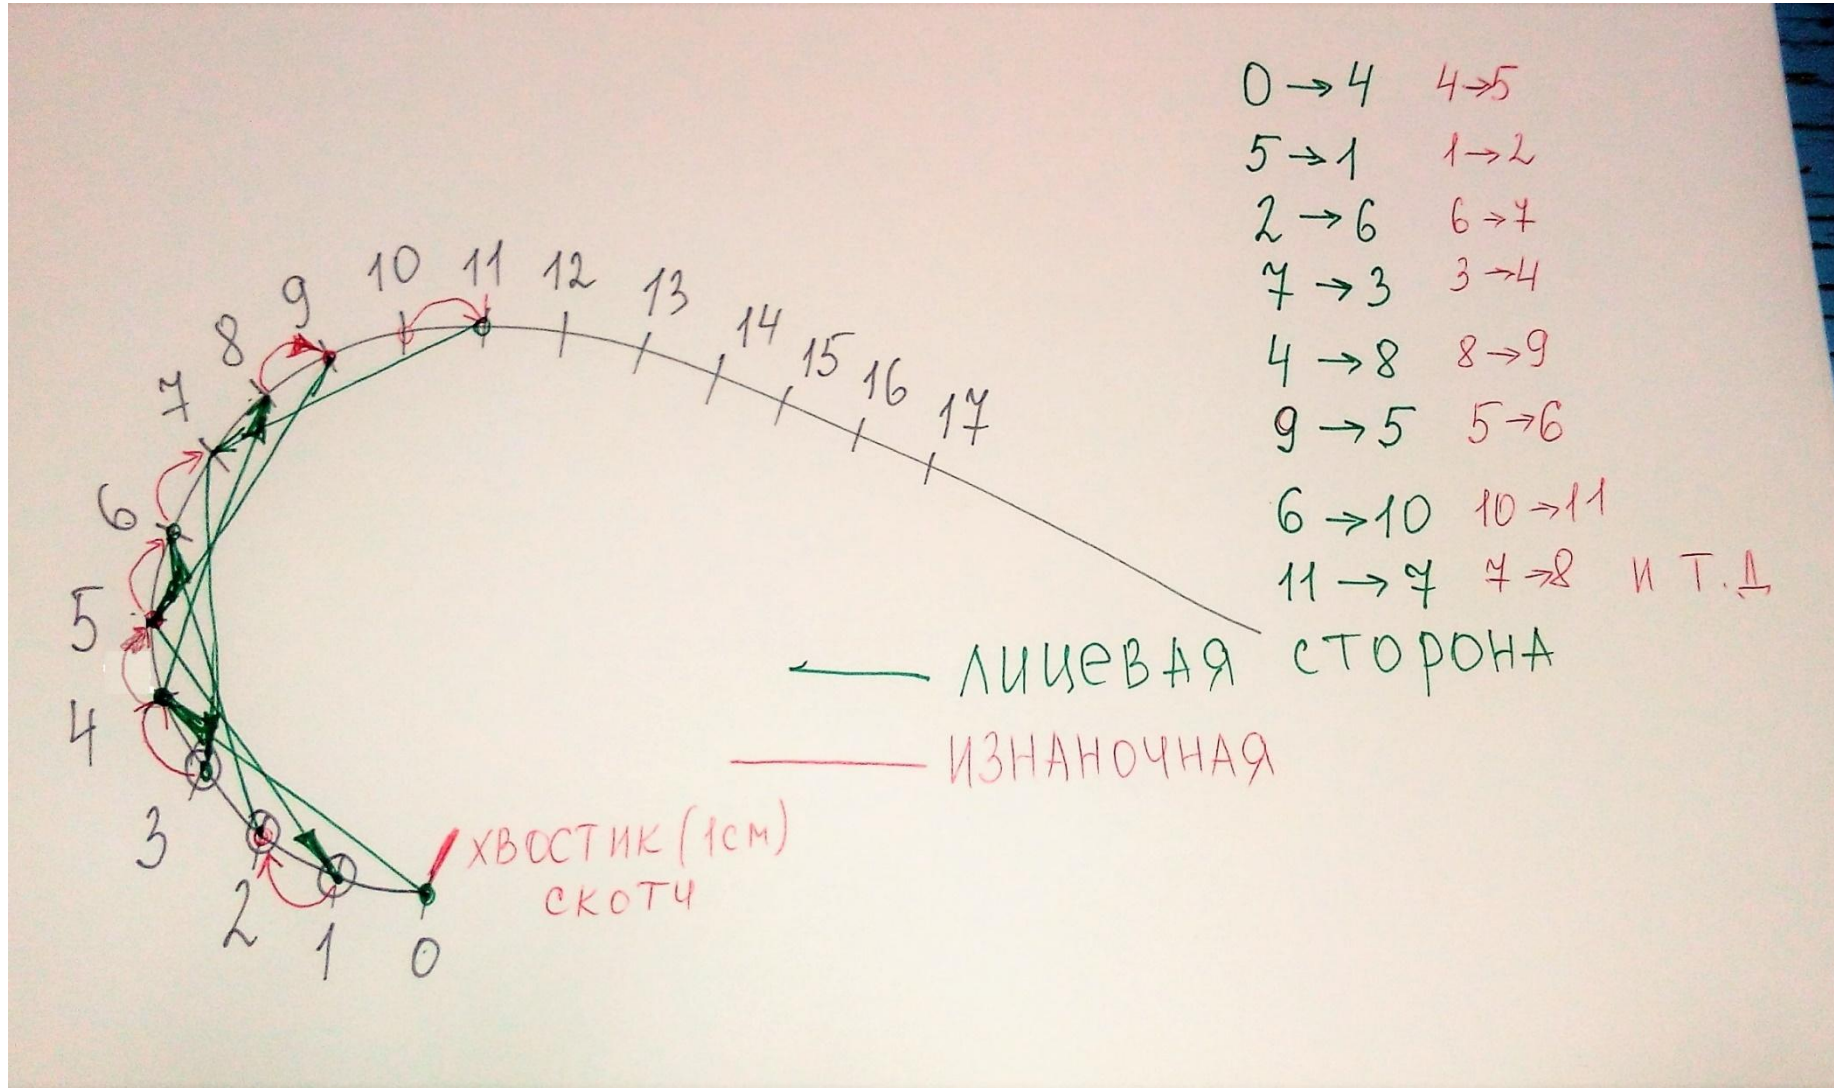 0 → 4 4 → 5
5 → 1 1 → 2
2 → 6 6 → 7
7 → 3 3 → 4
4 → 8 8 → 9
9 → 5 5 → 6
6 → 10 10 → 11
11 → 7 7 → 8 И Т.Д
9 10 11 12 13
8 14 15 16 17
7
6
5
4
3
2
1
0
ЛИЦЕВАЯ СТОРОНА
ИЗНАНОЧНАЯ
ХВОСТИК (1СМ)
СКОТЧ